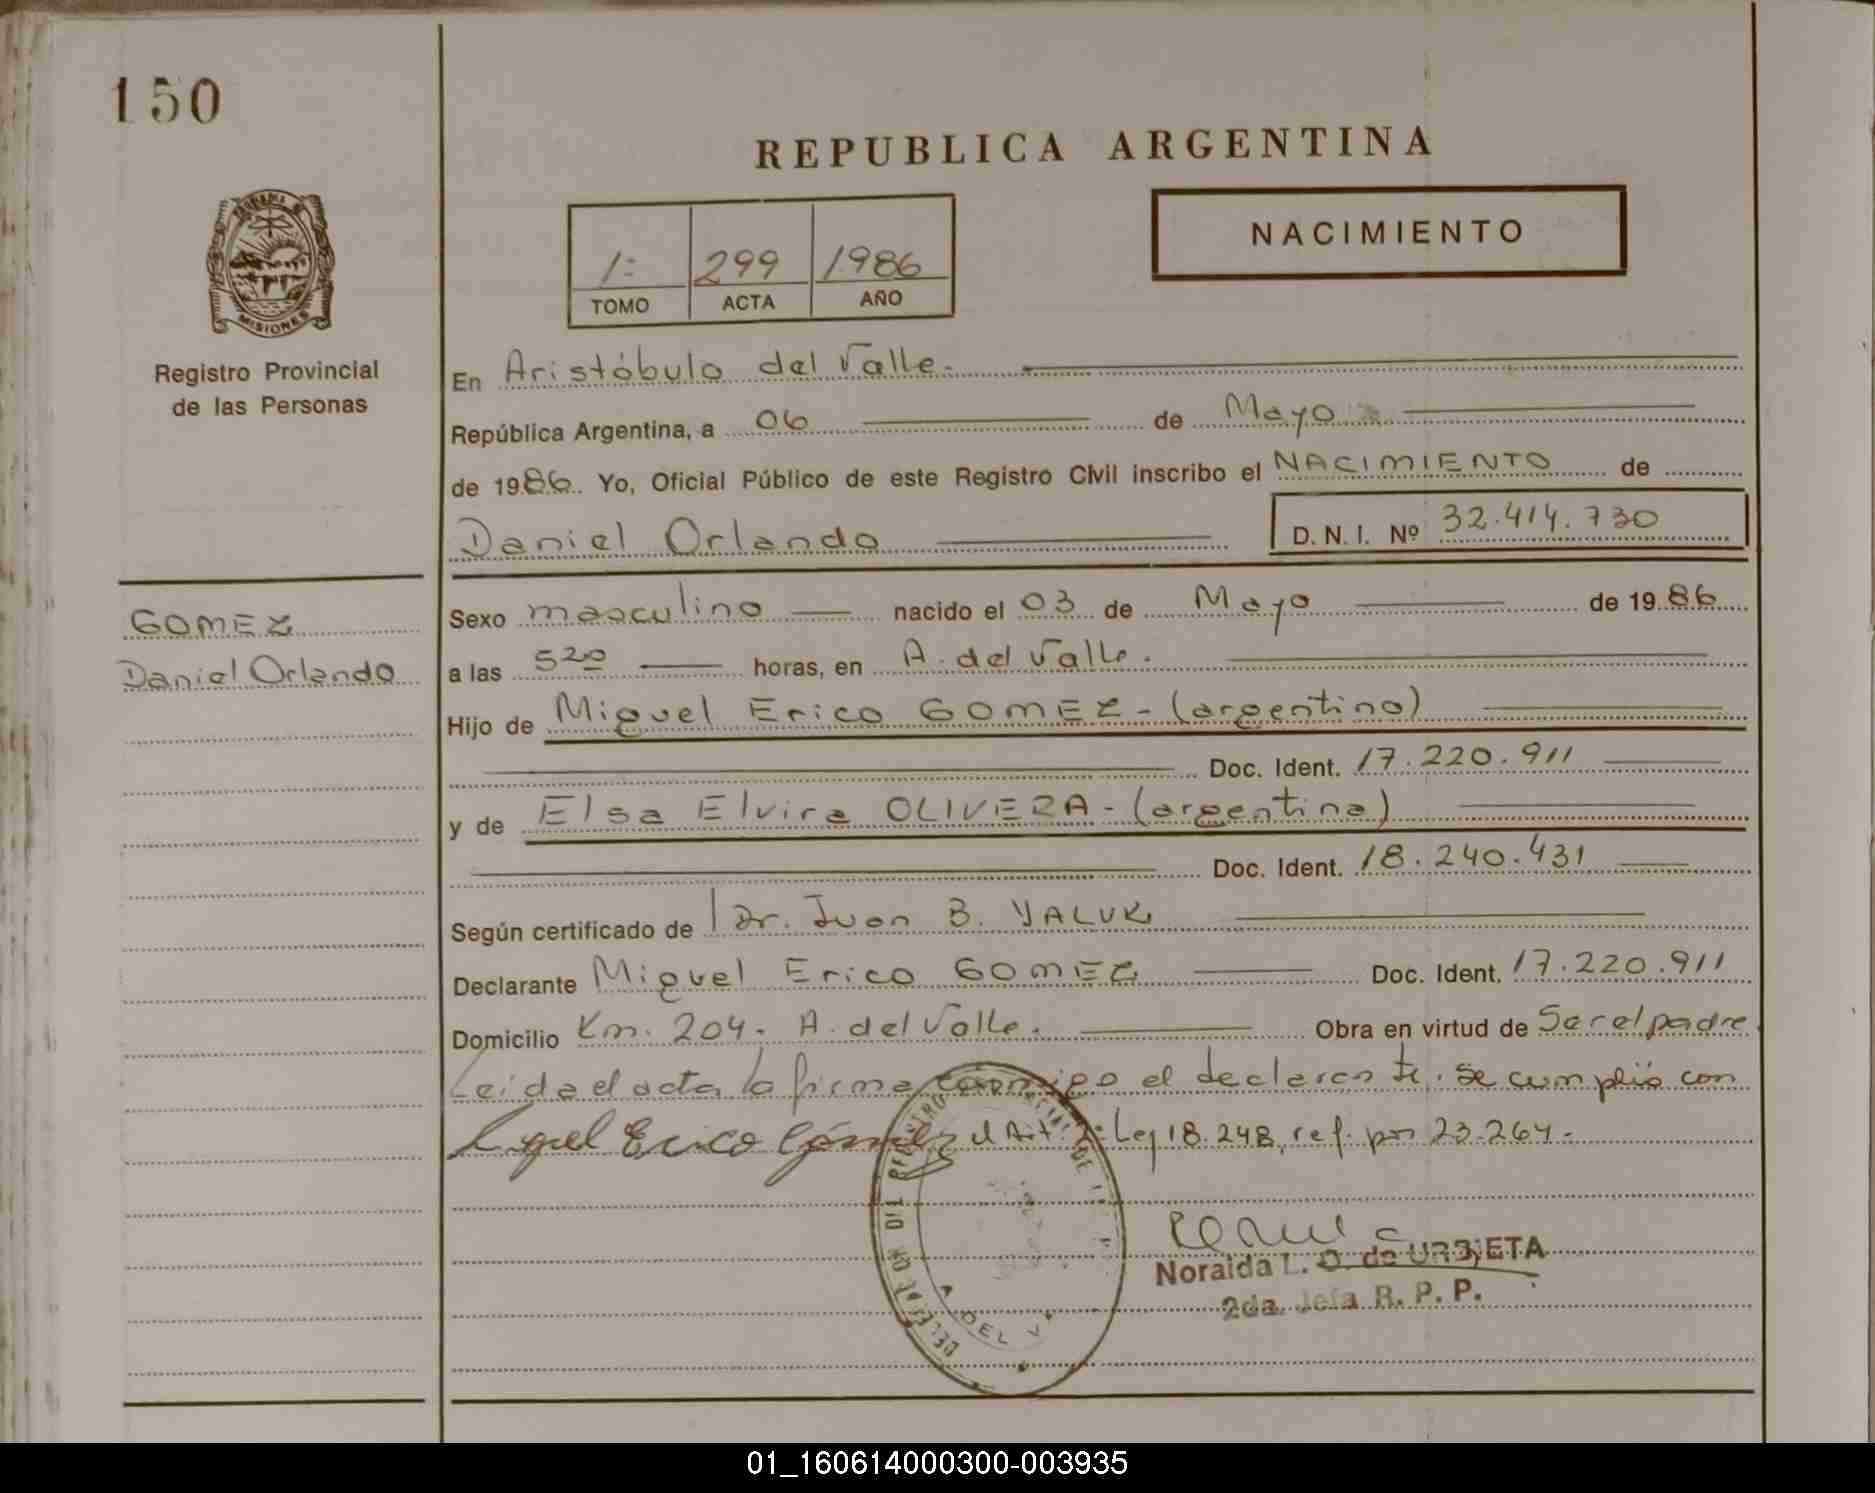 150
REPUBLICA ARGENTINA
MISIONES
Registro Provincial
de las Personas
1º 299 1986
TOMO ACTA AÑO
NACIMIENTO
En Aristóbulo del Valle.
República Argentina, a 06 de Mayo
de 1986. Yo, Oficial Público de este Registro Civil inscribo el NACIMIENTO de
Daniel Orlando D. N. I. Nº 32.414.730
GOMEZ
Daniel Orlando
Sexo masculino nacido el 03 de Mayo de 1986
a las 520 horas, en A. del Valle.
Hijo de Miguel Erico GOMEZ - (argentino)
Doc. Ident. 17.220.911
y de Elsa Elvira OLIVERA - (argentina)
Doc. Ident. 18.240.431
Según certificado de Dr. Juan B. YALUK
Declarante Miguel Erico GOMEZ Doc. Ident. 17.220.911
Domicilio Km. 204. A. del Valle. Obra en virtud de Ser el padre.
Leida el acta, la firma conmigo el declarante. Se cumplió con
el Art. Ley 18.248, ref. por 23.264.-
Erico Gómez
DELEGACION DEL REGISTRO PROVINCIAL DE
A. DEL V
Noraida L. O. de URBIETA
2da. Jefa R. P. P.
01_160614000300-003935